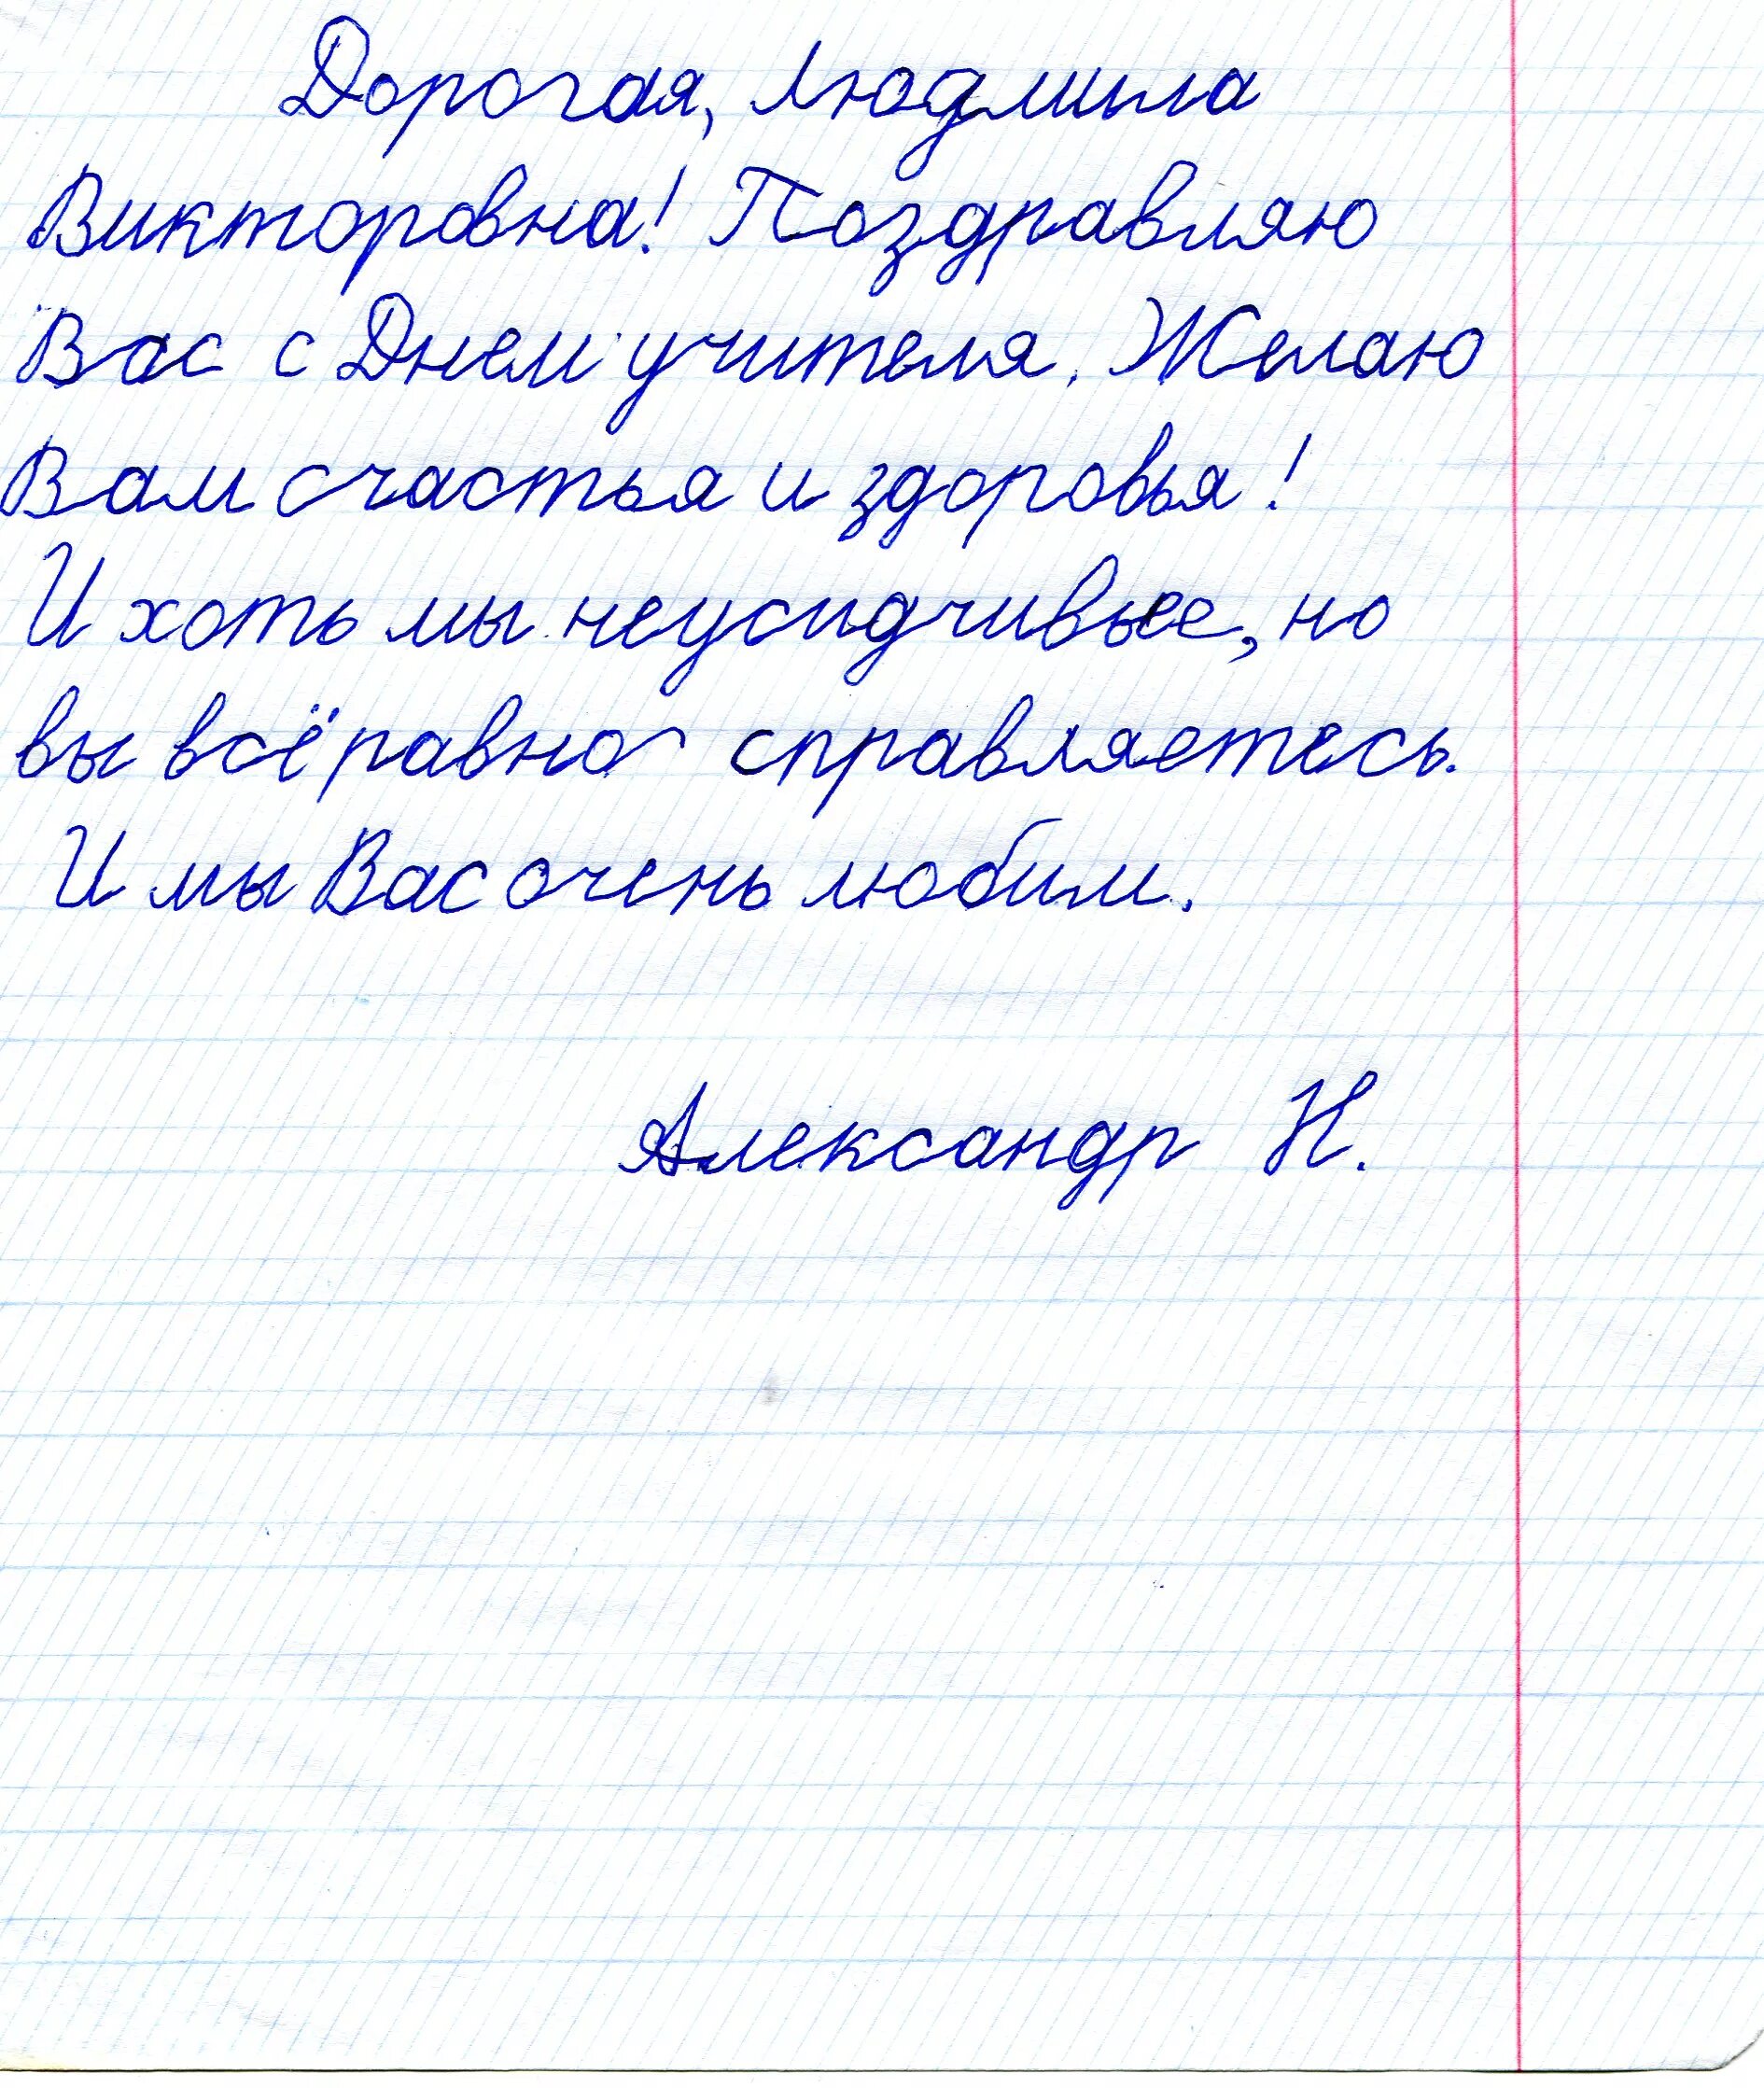 Дорогая, Людмила
Викторовна! Поздравляю
Вас с Днем учителя. Желаю
Вам счастья и здоровья!
И хоть мы неусидчивые, но
вы всё равно справляетесь.
И мы Вас очень любим.
Александр Н.